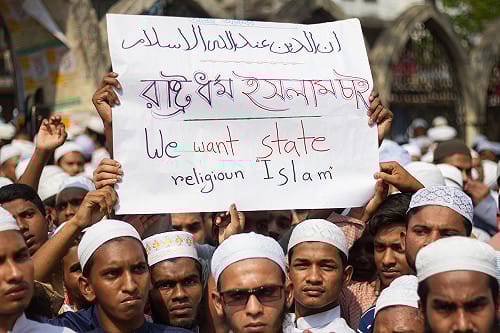 ان الدين عند الله الاسلام
রাষ্ট্রধর্ম ইসলাম চাই
We want state
religioun Islam